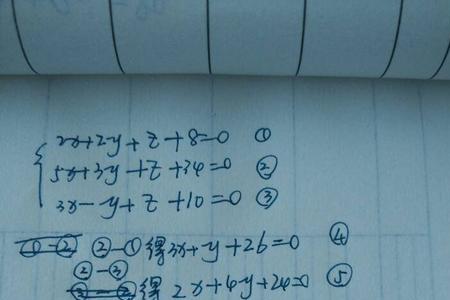 2x+2y+z+8=0 ①
5x+3y+z+34=0 ②
3x-y+z+10=0 ③
②-① 得 3x+y+26=0 ④
②-③
得 2x+4y+24=0 ⑤